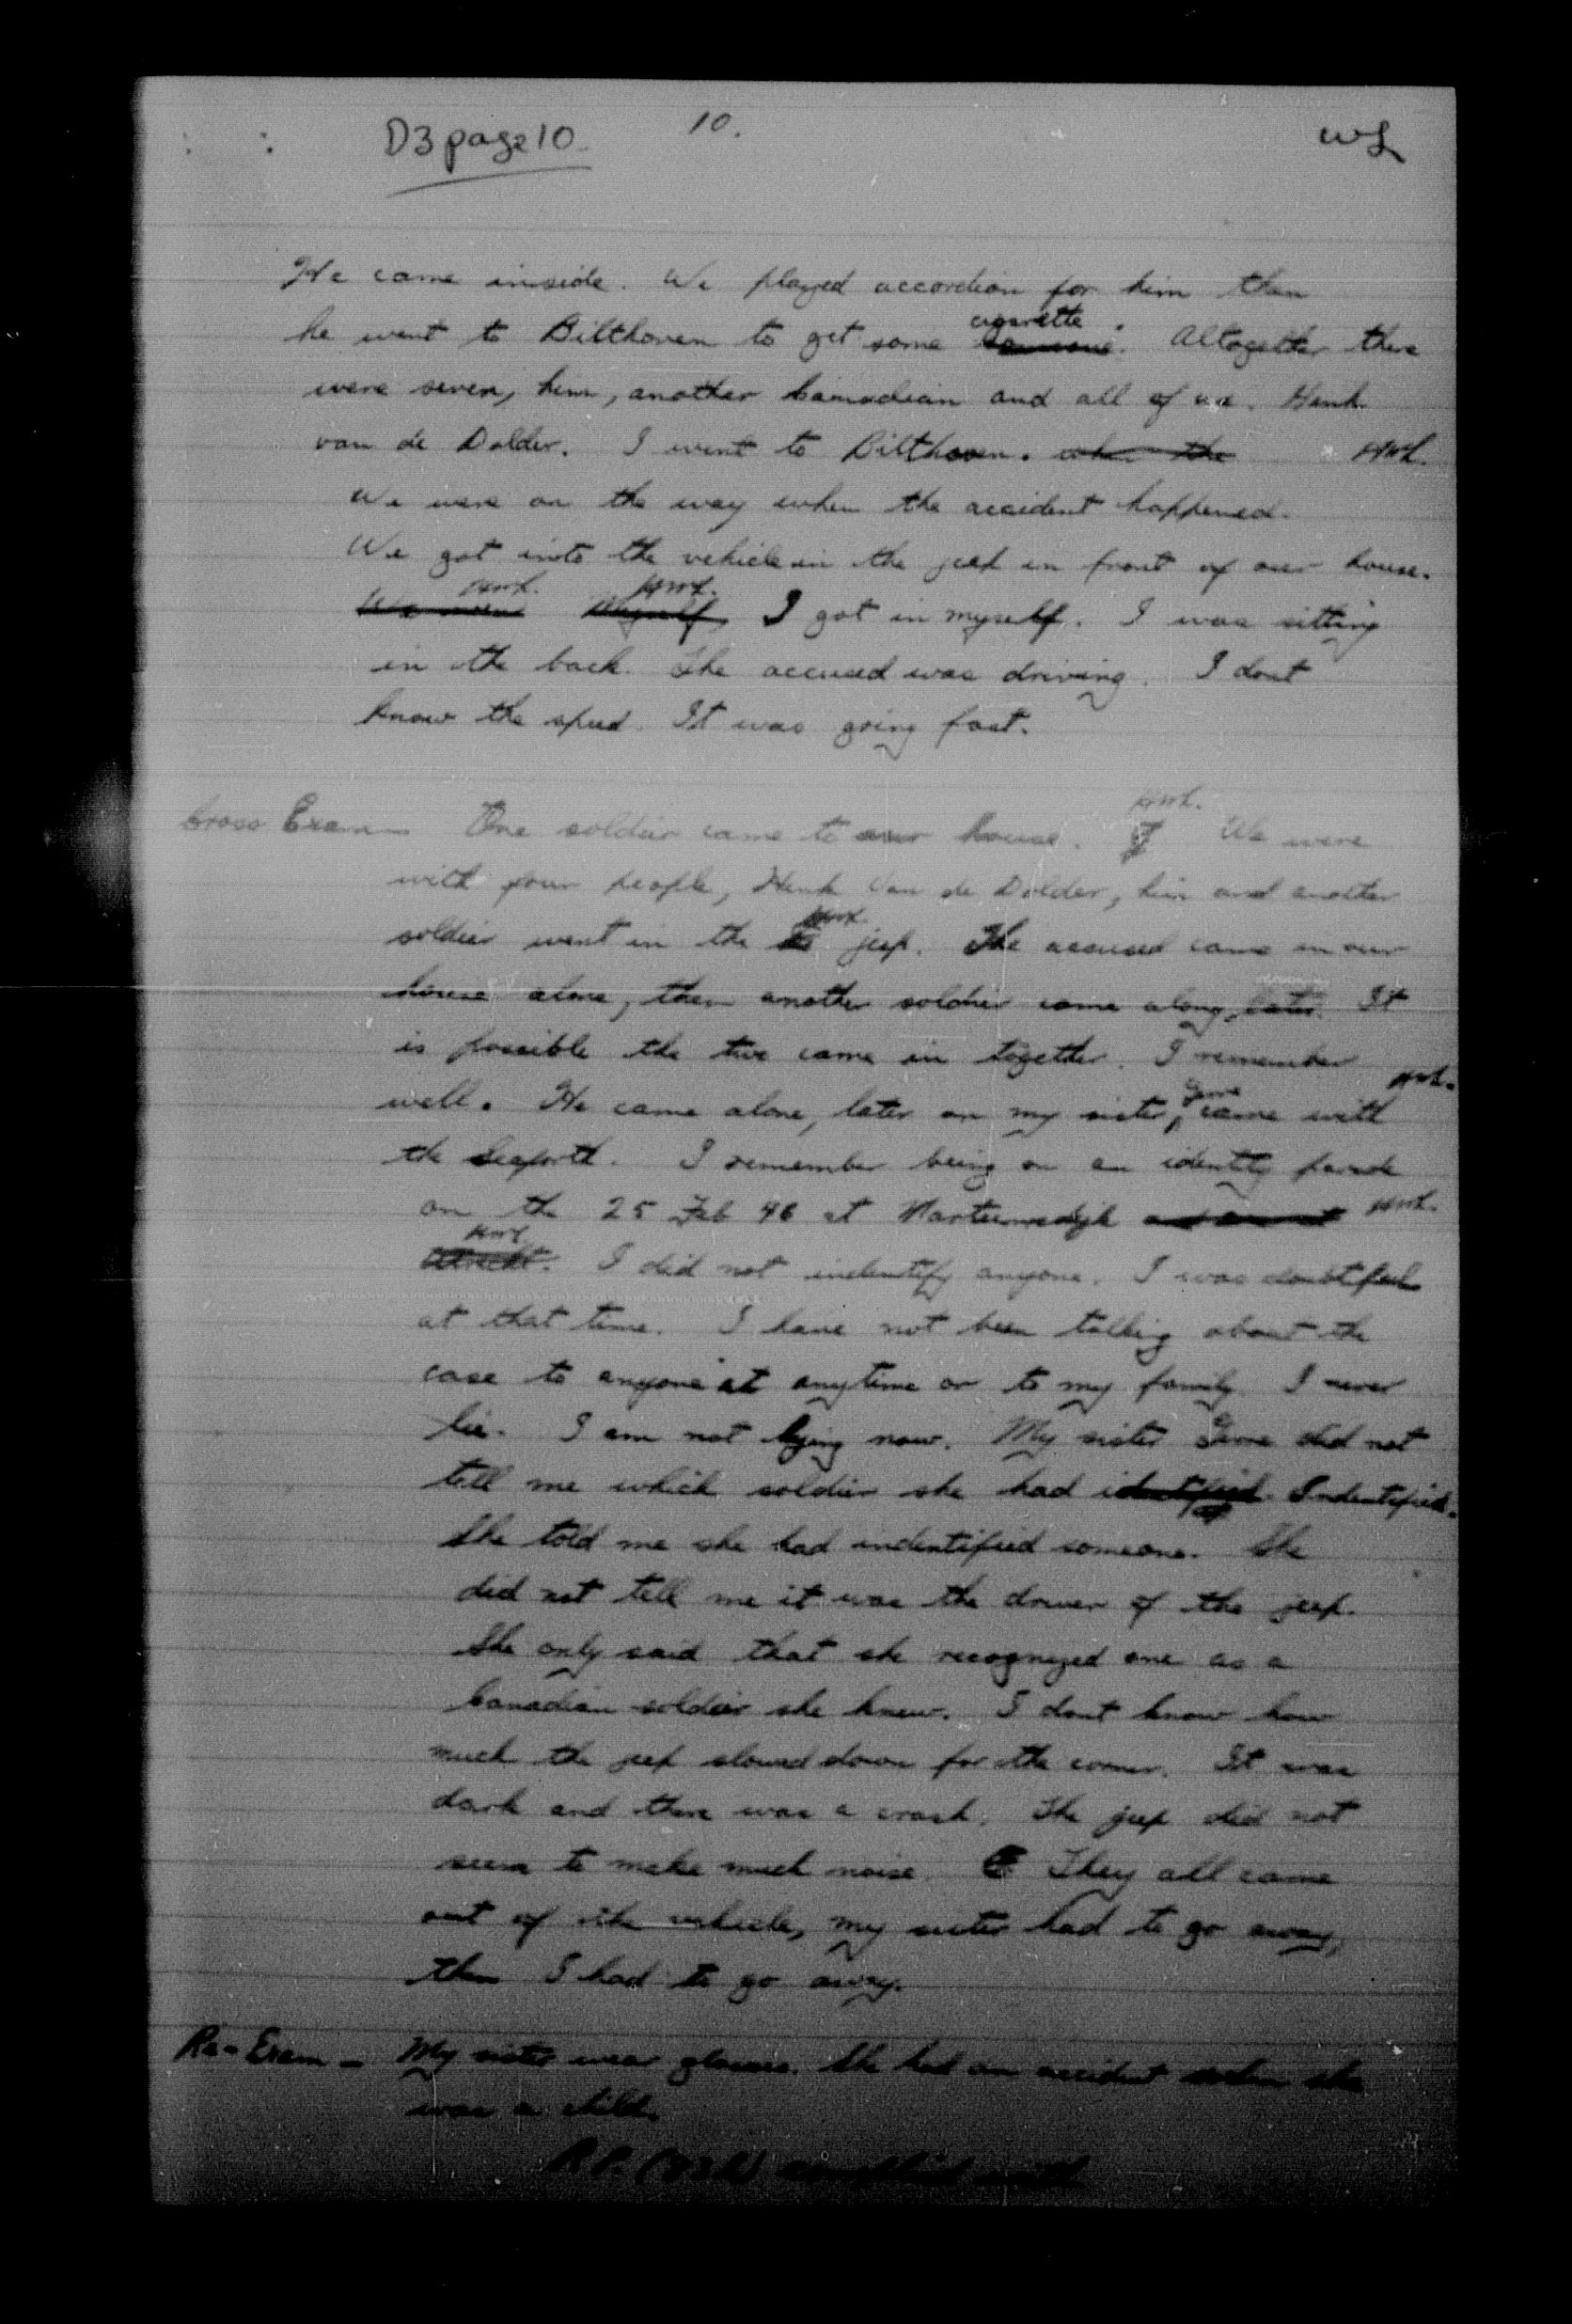 D3 page 10. 10. WL
He came inside. We played accordion for him then
he went to Bilthoven to get some cigarette. Altogether there
were seven, him, another Canadian and all of us. Henk
van de Dolder. I went to Bilthoven. when the HWL.
We were on the way when the accident happened.
We got into the vehicle in the jeep in front of our house.
HWL. HWL.
We were Myself, I got in myself. I was sitting
in the back. The accused was driving. I dont
know the speed. It was going fast.
HWL.
Cross Exam - One soldier came to our house. We were
with four people, Henk Van de Dolder, him and another
soldier went in the jeep. The accused came in our
house alone, then another soldier came along, later. It
is possible the two came in together. I remember HWL.
well. He came alone, later on my sister, came with
the Seaforth. I remember being on an identity parade
on the 25 Feb 46 at Maartensdijk HWL.
HWL
Utrecht. I did not indentify anyone. I was doubtful
at that time. I have not been talking about the
case to anyone at anytime or to my family I never
lie. I am not lying now. My sister did not
tell me which soldier she had identified Indentified.
She told me she had indentified someone. She
did not tell me it was the driver of the jeep.
She only said that she recognyzed one as a
Canadian soldier she knew. I dont know how
much the jeep slowed down for the corner. It was
dark and there was a crash. The jeep did not
seem to make much noise. They all came
out of the vehicle, my sister had to go away,
then I had to go away.
Re-Exam - My sister wear glasses. She had an accident when she
was a child.
R.P. (83h) complied with